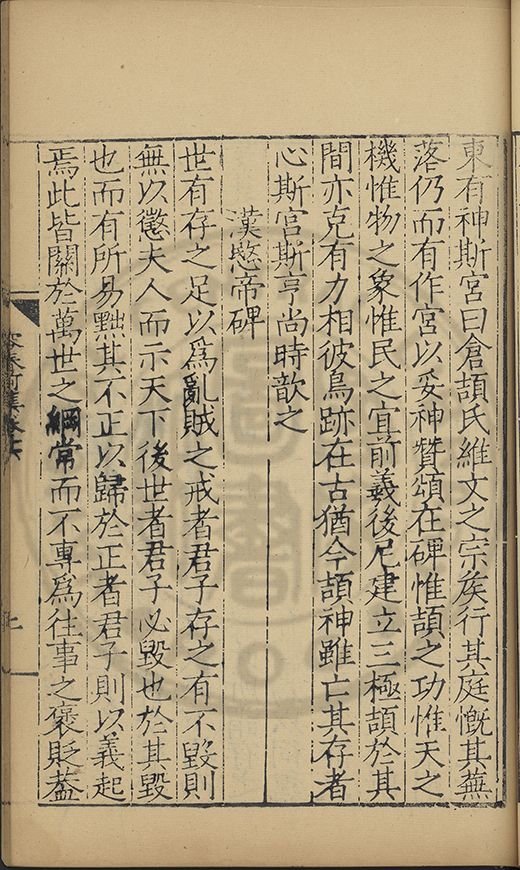 東有神斯宮曰倉頡氏維文之宗矣行其庭慨其蕪
落仍而有作宮以妥神贊頌在碑惟頡之功惟天之
機惟物之象惟民之宜前羲後尼建立三極頡於其
間亦克有力相彼鳥跡在古猶今頡神雖亡其存者
心斯宮斯亨尚時歆之
漢愍帝碑
世有存之足以爲亂賊之戒者君子存之有不毀則
無以懲夫人而示天下後世者君子必毀也於其毀
也而有所易黜其不正以歸於正者君子則以義起
焉此皆關於萬世之綱常而不專爲徃事之褒貶蓋